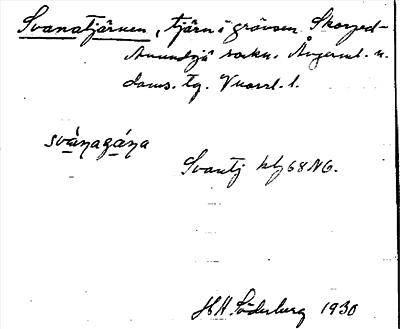 Svanatjärnen, tjärn i gränsen Skorped-
Anundsjö sockn. Ångerml. n.
doms. tg. Vuorrl. l.
svànagána
Svantj kbj 68 NG.
H H Söderberg 1930